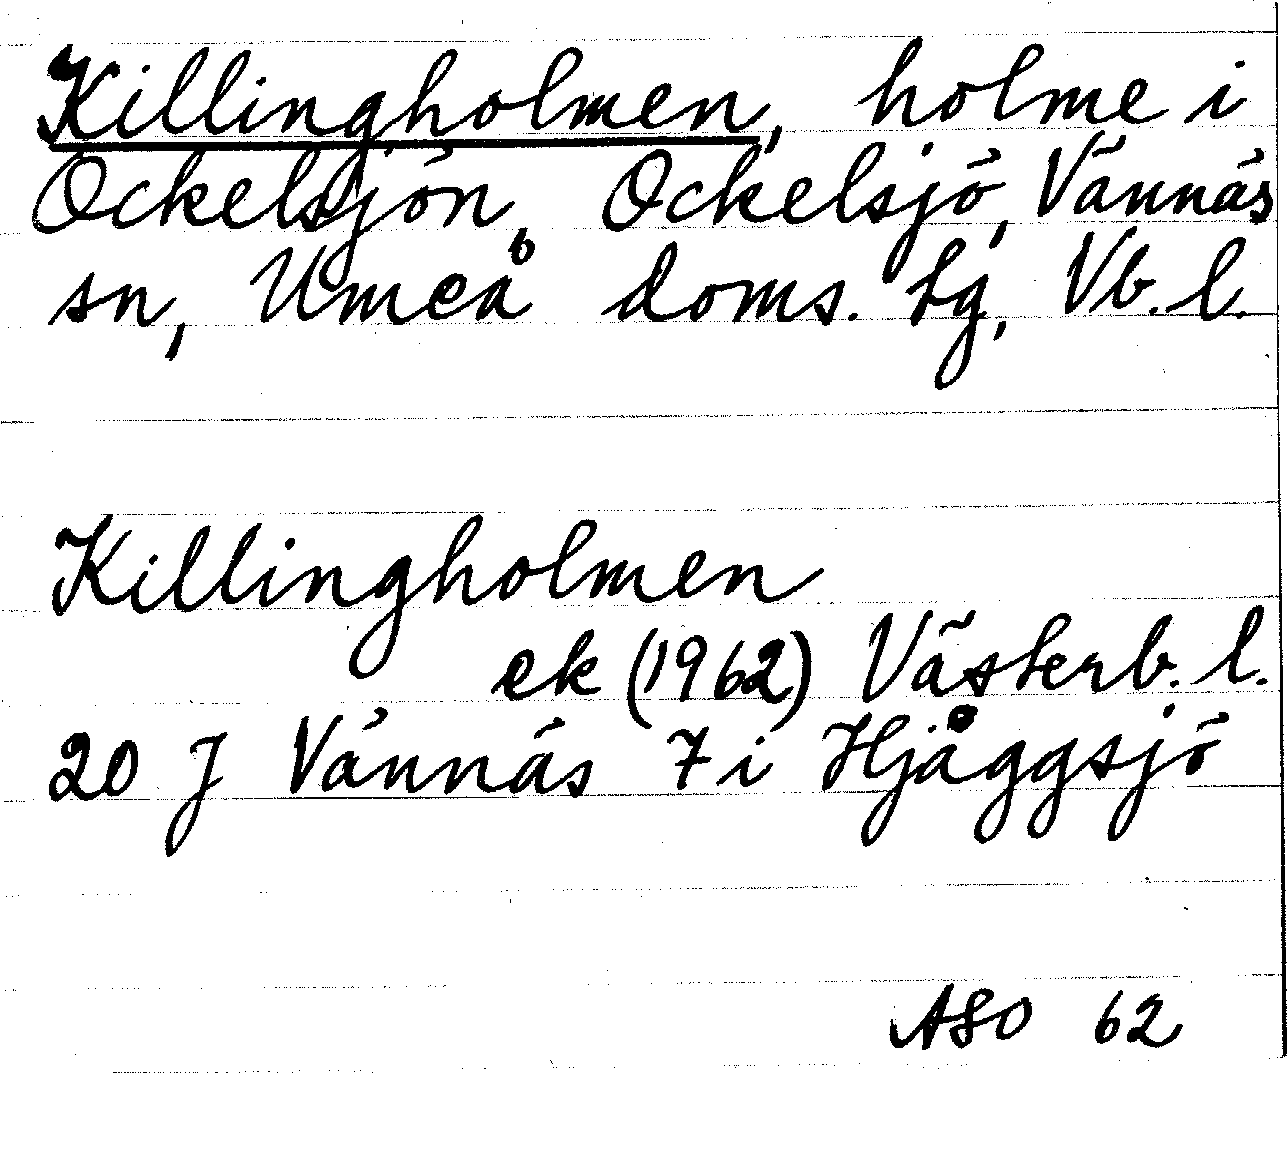 Killingholmen, holme i
Ockelsjön, Ockelsjö, Vännäs
sn, Umeå doms. tg, Vb. l.
Killingholmen
ek (1962) Västerb. l.
20 J Vännäs 7 i Hjåggsjö
ASO 62